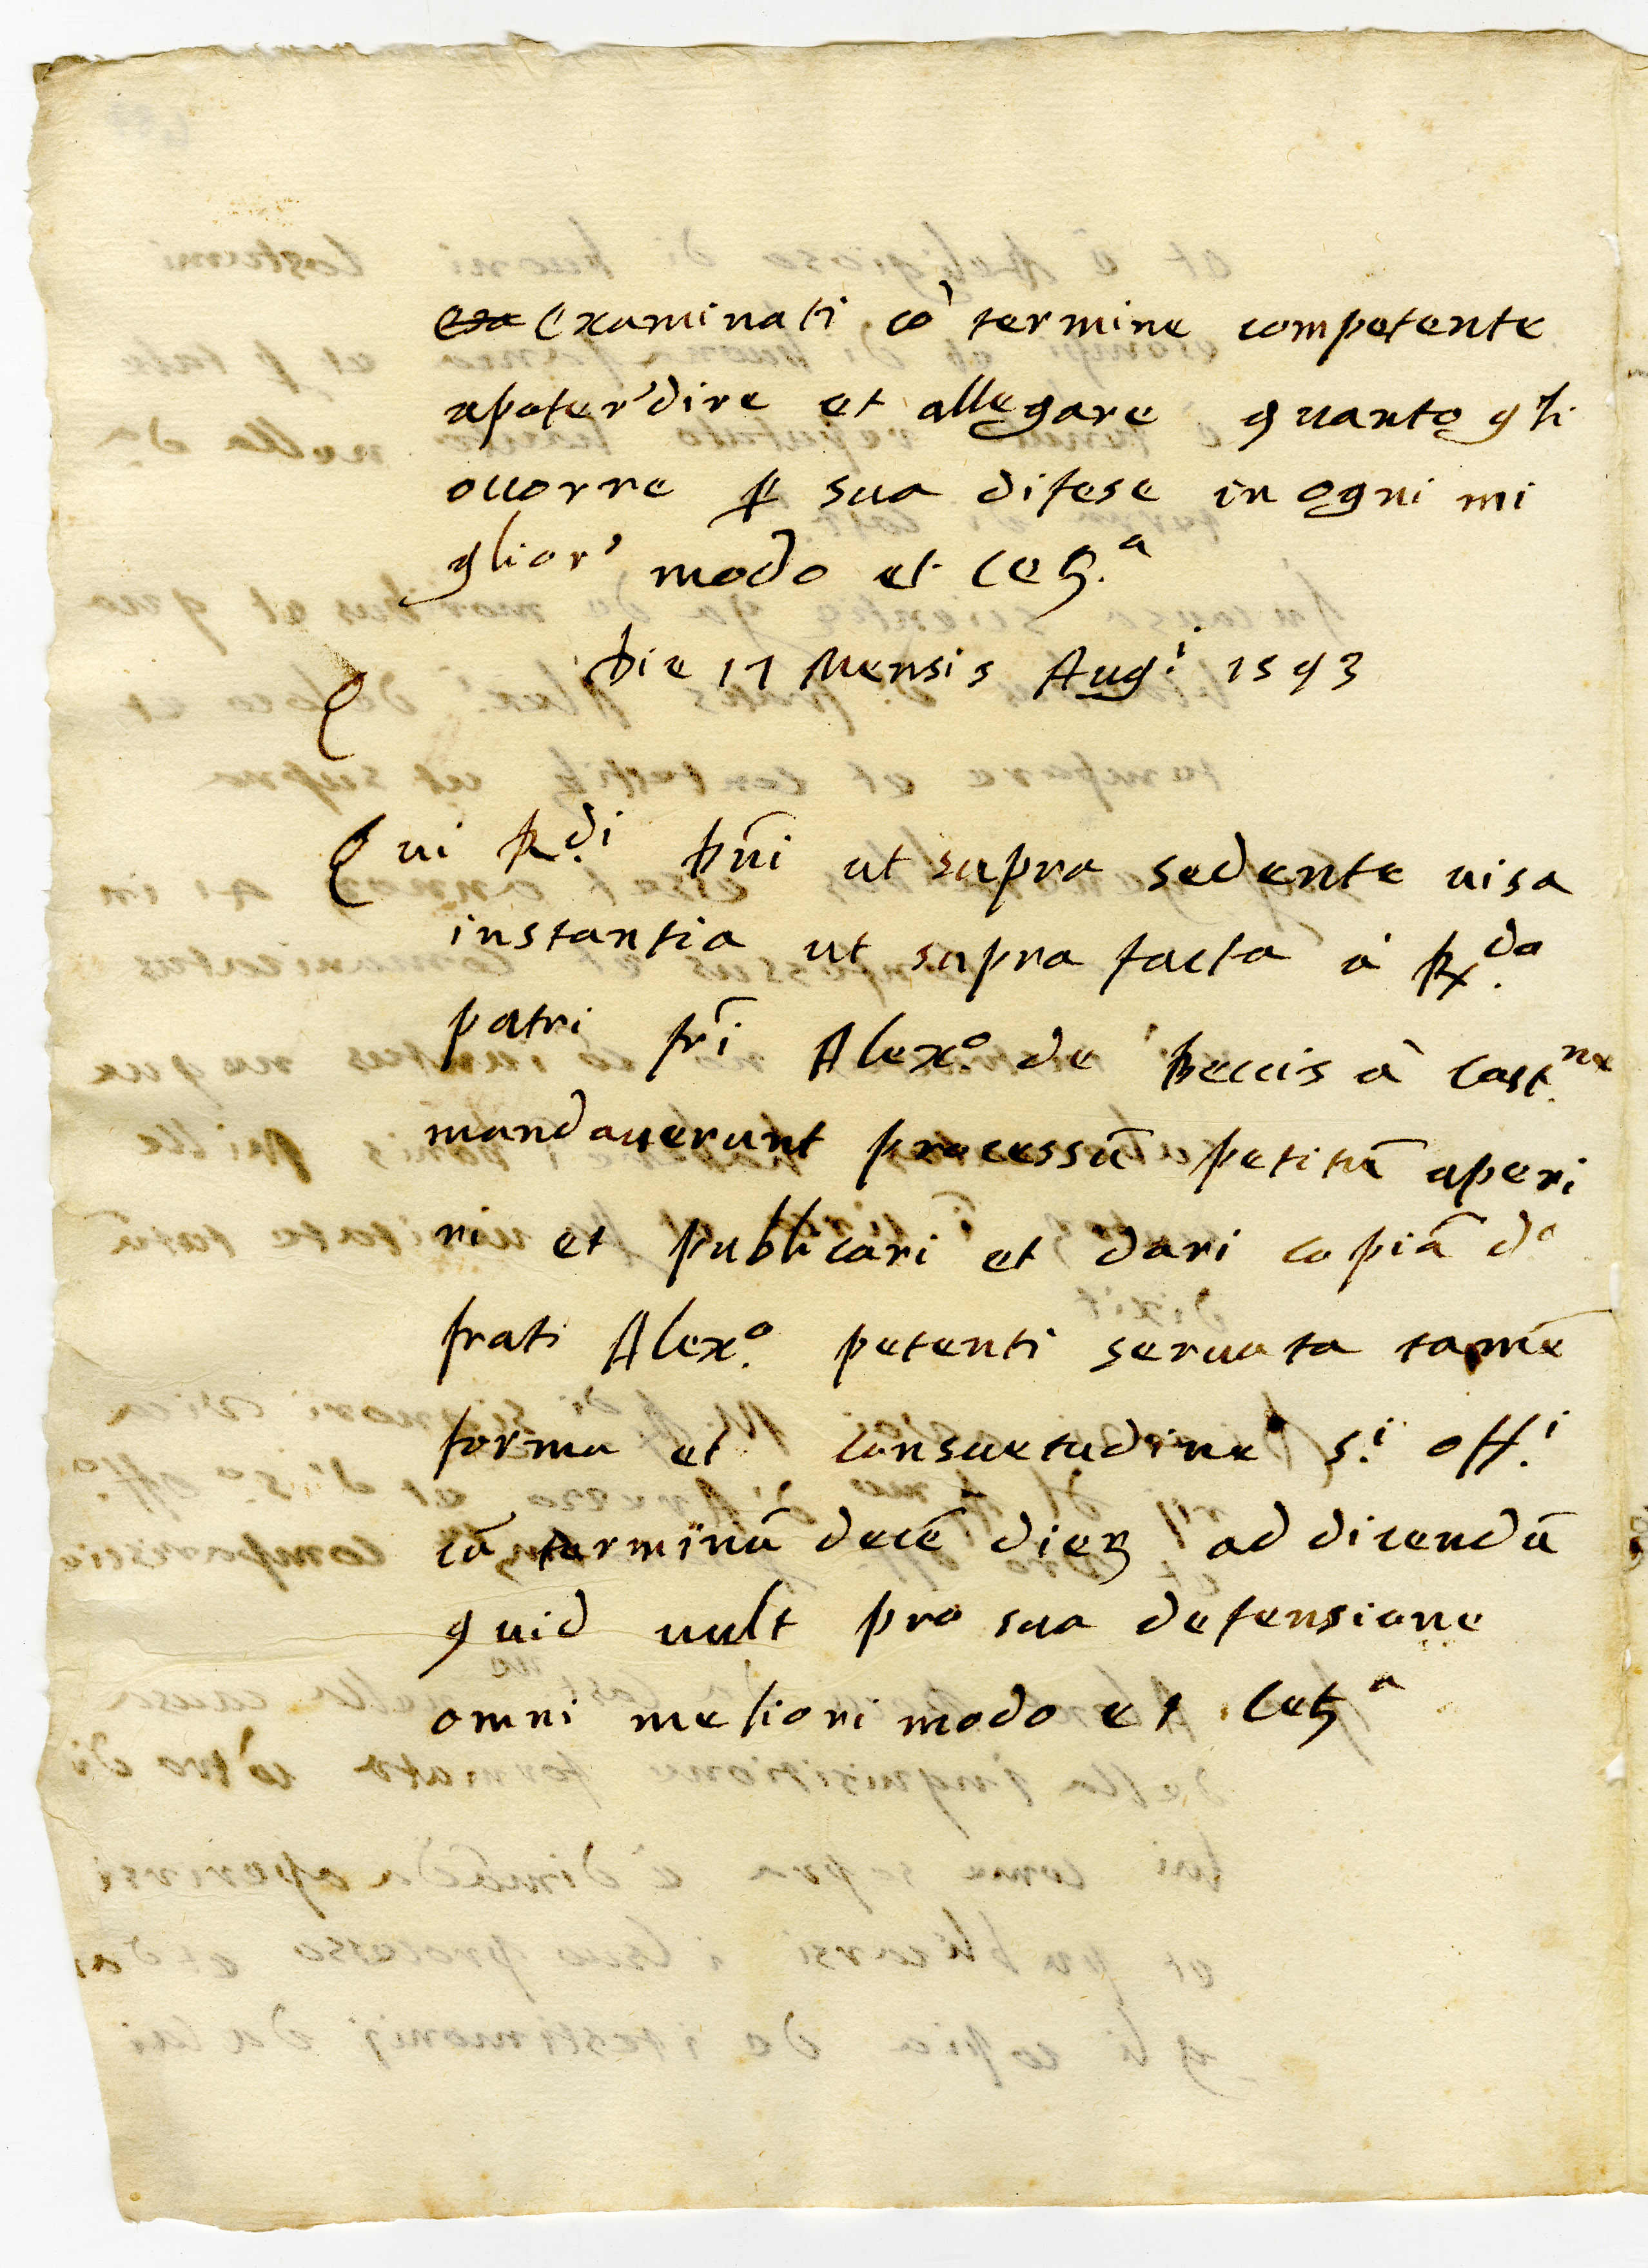 examinati cō termine competente
apoter' dire et allegare quanto gli
ocorre ꝑ sua difese in ogni mi
glior' modo et cetꝫ.ᵃ
Die 17 Mensis Aug.ⁱ 1593
Qui R.ᵈⁱ Dñi ut supra sedente uisa
instantia ut supra facta à R.ᵈᵒ
patri frī Alex.º de Beccis à Cast.ⁿᵉ
mandauerunt processū petitū aperi
ri et publicari et dari copiā d.º
frati Alex.º petenti seruata tamē
forma et consuetudine s.ⁱ off.ⁱ
cū terminū decē dieꝫ ad dicendū
quid uult pro sua defensione
omni meliori modo et cetꝫ.ᵃ